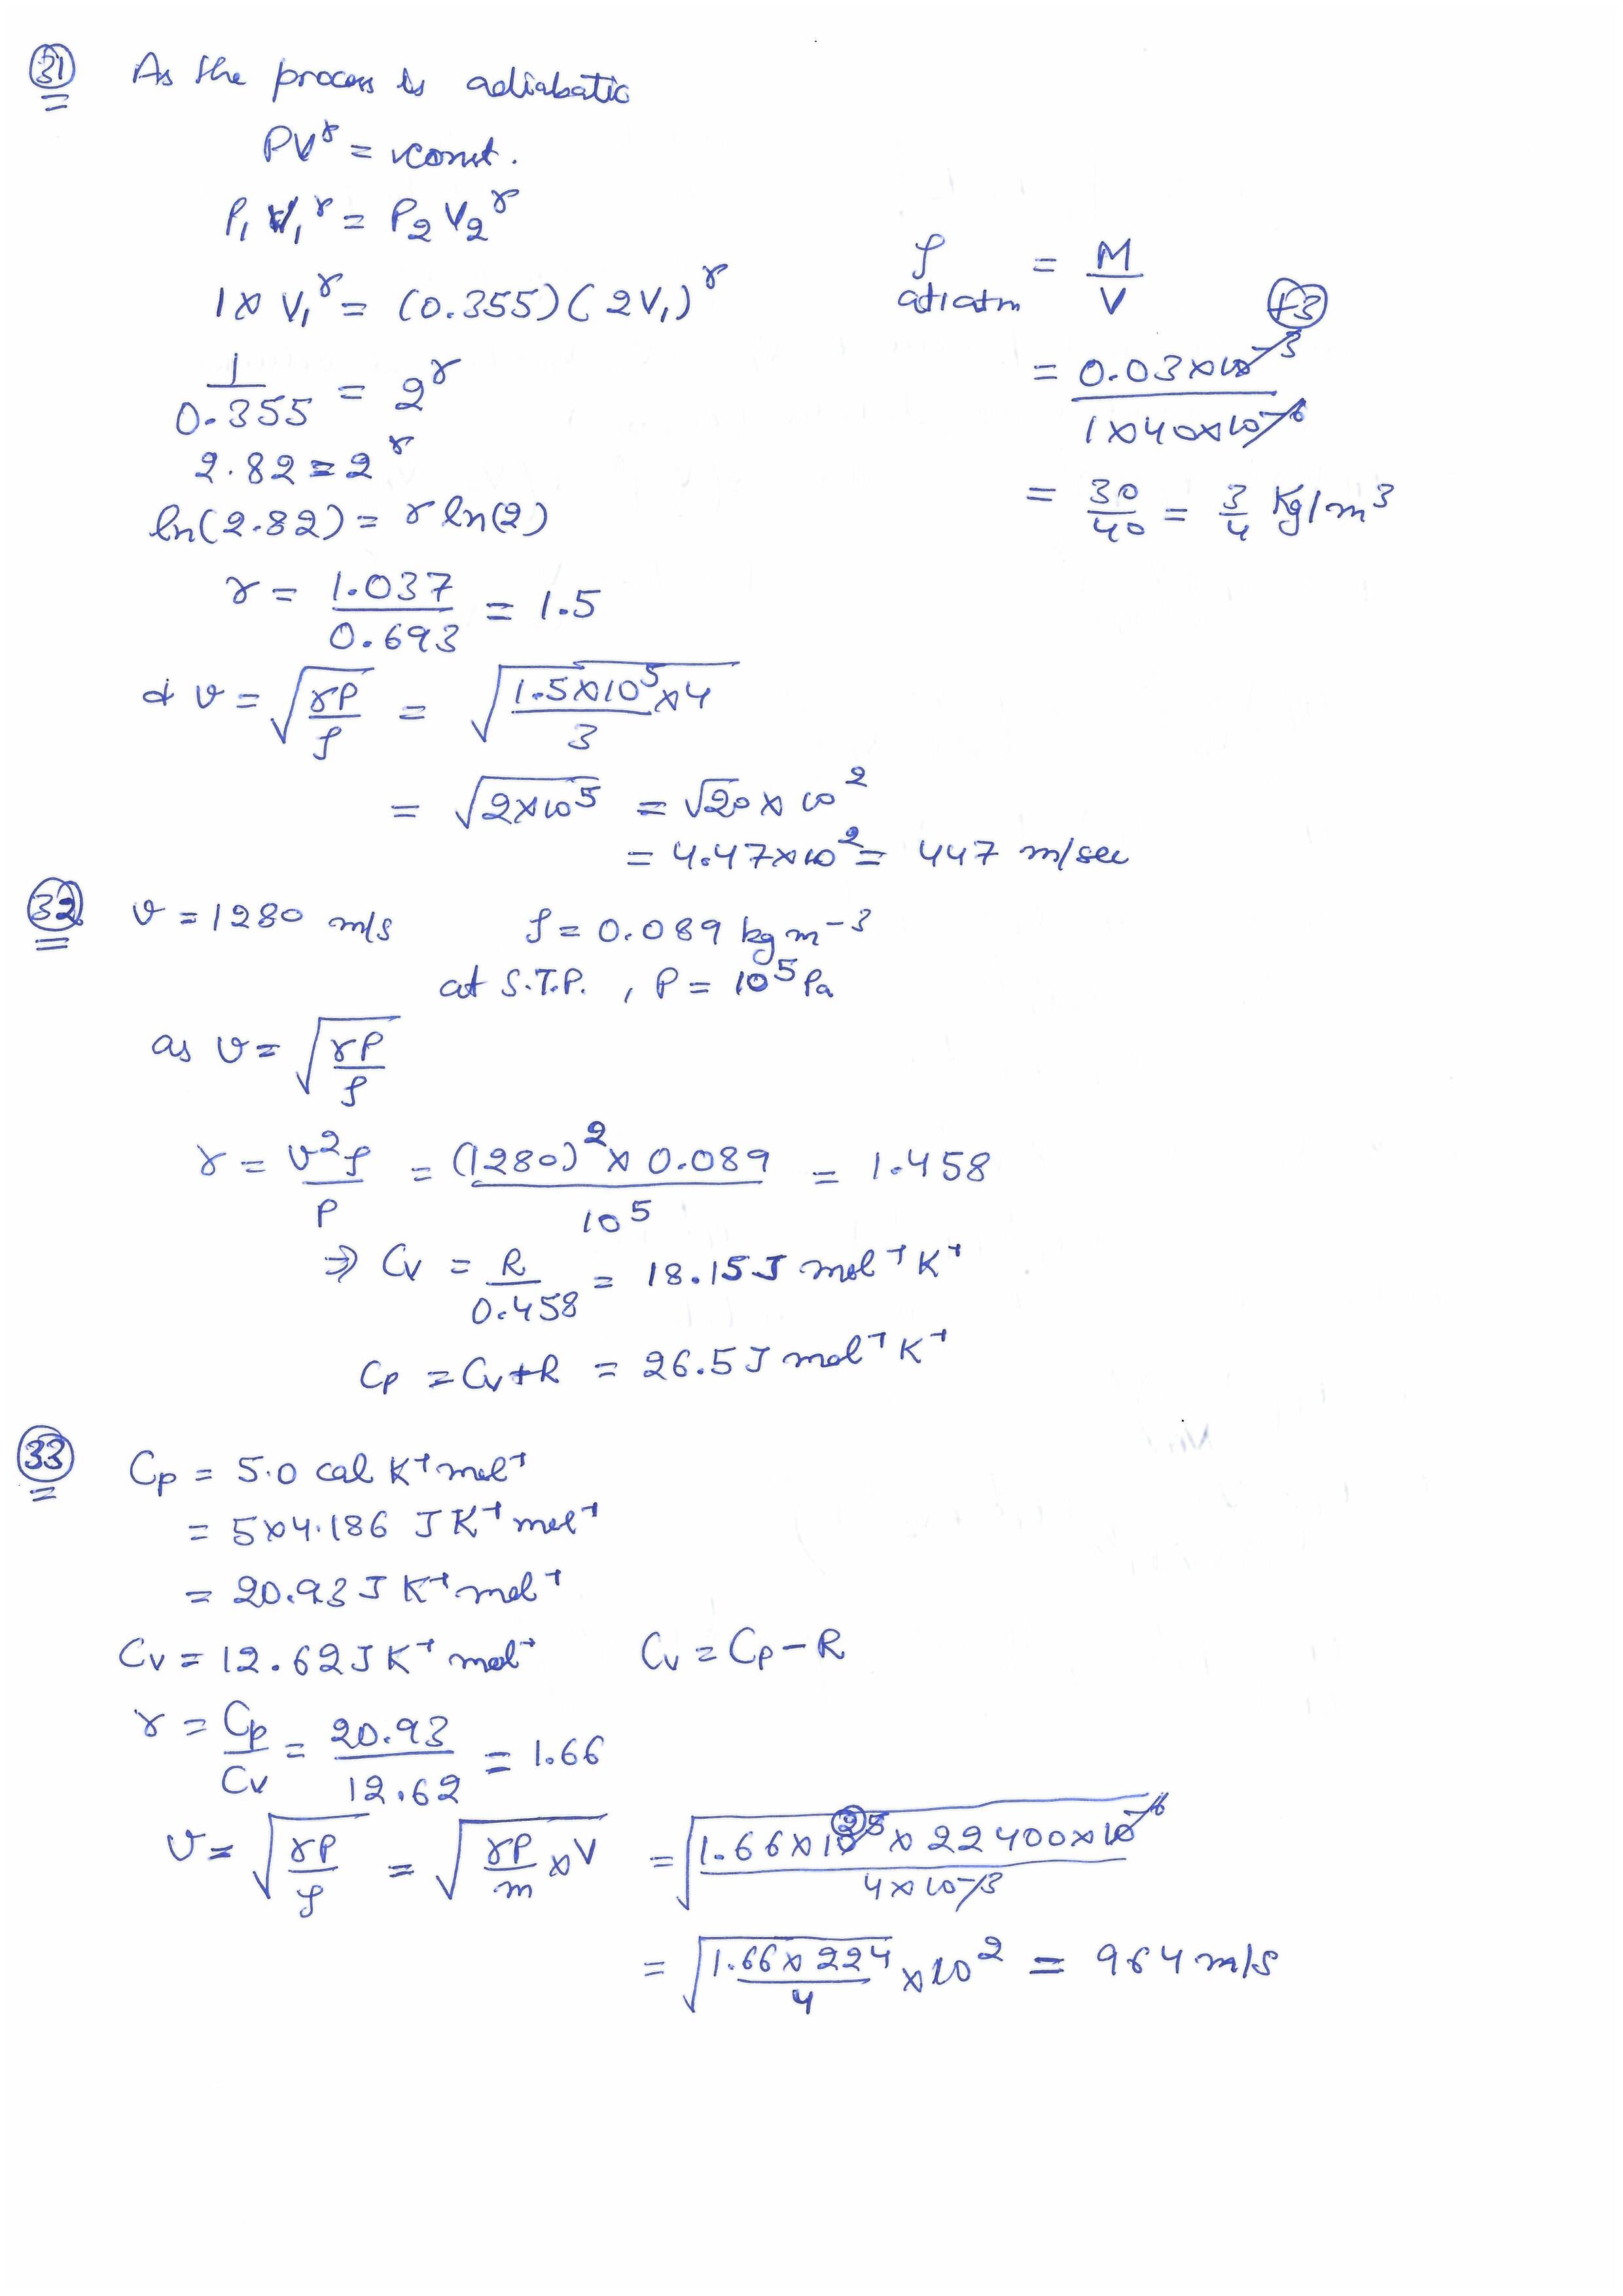 31 As the process is adiabatic
PV^γ = const.
P₁ V₁^γ = P₂ V₂^γ
1 × V₁^γ = (0.355)(2V₁)^γ
1/0.355 = 2^γ
2.82 = 2^γ
ln(2.82) = γ ln(2)
γ = 1.037/0.693 = 1.5
ρ at 1 atm = M/V
= 0.03×10⁻³/1×40×10⁻⁶ (+3)
= 30/40 = 3/4 Kg/m³
& v = √(γP/ρ) = √(1.5×10⁵×4/3)
= √(2×10⁵) = √20 × 10²
= 4.47×10² = 447 m/sec
32 v = 1280 m/s ρ = 0.089 kg m⁻³
at S.T.P. , P = 10⁵ Pa
as v = √(γP/ρ)
γ = v²ρ/P = (1280)² × 0.089/10⁵ = 1.458
⇒ Cv = R/0.458 = 18.15 J mol⁻¹ K⁻¹
Cp = Cv+R = 26.5 J mol⁻¹ K⁻¹
33 Cp = 5.0 cal K⁻¹ mol⁻¹
= 5×4.186 J K⁻¹ mol⁻¹
= 20.93 J K⁻¹ mol⁻¹
Cv = 12.62 J K⁻¹ mol⁻¹ Cv = Cp − R
γ = Cp/Cv = 20.93/12.62 = 1.66
v = √(γP/ρ) = √(γP/m × V) = √(1.66×10⁵ × 22400×10⁻⁶/4×10⁻³) (2)
= √(1.66×224/4) × 10² = 964 m/s